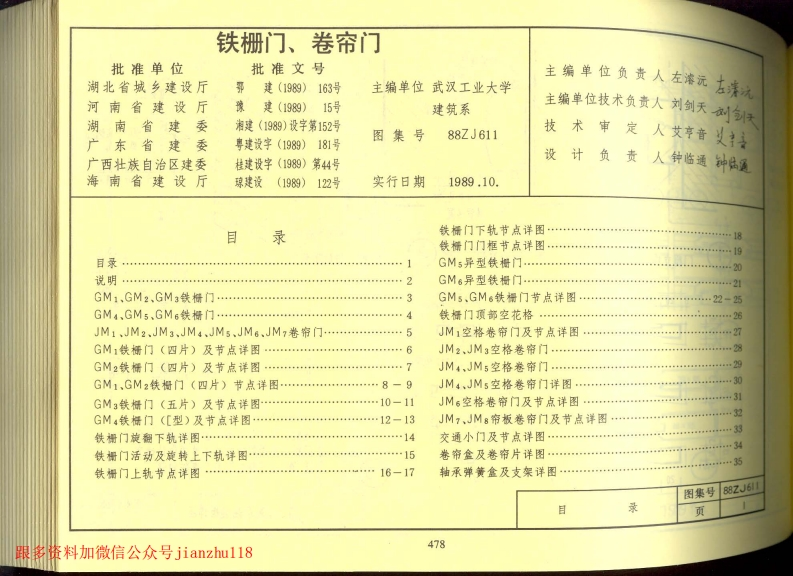 铁栅门、卷帘门
批准单位 批准文号
湖北省城乡建设厅 鄂 建(1989) 163号
河南省建设厅 豫 建(1989) 15号
湖南省建委 湘建(1989)设字第152号
广东省建委 粤建设字(1989) 181号
广西壮族自治区建委 桂建设字(1989) 第44号
海南省建设厅 琼建设 (1989) 122号
主编单位 武汉工业大学
建筑系
图集号 88ZJ611
实行日期 1989.10.
主编单位负责人 左濬沅 左濬沅
主编单位技术负责人 刘剑天 刘剑天
技术审定人 艾亨音 艾亨音
设计负责人 钟临通 钟临通
目 录
目录 1
说明 2
GM₁、GM₂、GM₃铁栅门 3
GM₄、GM₅、GM₆铁栅门 4
JM₁、JM₂、JM₃、JM₄、JM₅、JM₆、JM₇卷帘门 5
GM₁铁栅门(四片)及节点详图 6
GM₂铁栅门(四片)及节点详图 7
GM₁、GM₂铁栅门(四片)节点详图 8-9
GM₃铁栅门(五片)及节点详图 10-11
GM₄铁栅门([型)及节点详图 12-13
铁栅门旋翻下轨详图 14
铁栅门活动及旋转上下轨详图 15
铁栅门上轨节点详图 16-17
铁栅门下轨节点详图 18
铁栅门门框节点详图 19
GM₅异型铁栅门 20
GM₆异型铁栅门 21
GM₅、GM₆铁栅门节点详图 22-25
铁栅门顶部空花格 26
JM₁空格卷帘门及节点详图 27
JM₂、JM₃空格卷帘门 28
JM₄、JM₅空格卷帘门 29
JM₄、JM₅空格卷帘门详图 30
JM₆空格卷帘门及节点详图 31
JM₇、JM₈帘板卷帘门及节点详图 32
交通小门及节点详图 33
卷帘盒及卷帘片详图 34
轴承弹簧盒及支架详图 35
目 录
图集号 88ZJ611
页 1
478
跟多资料加微信公众号jianzhu118